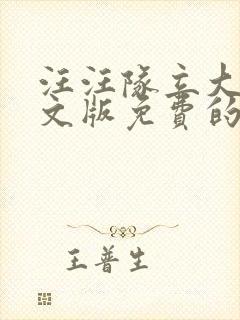 汪汪队立大
文版免费的
王普生